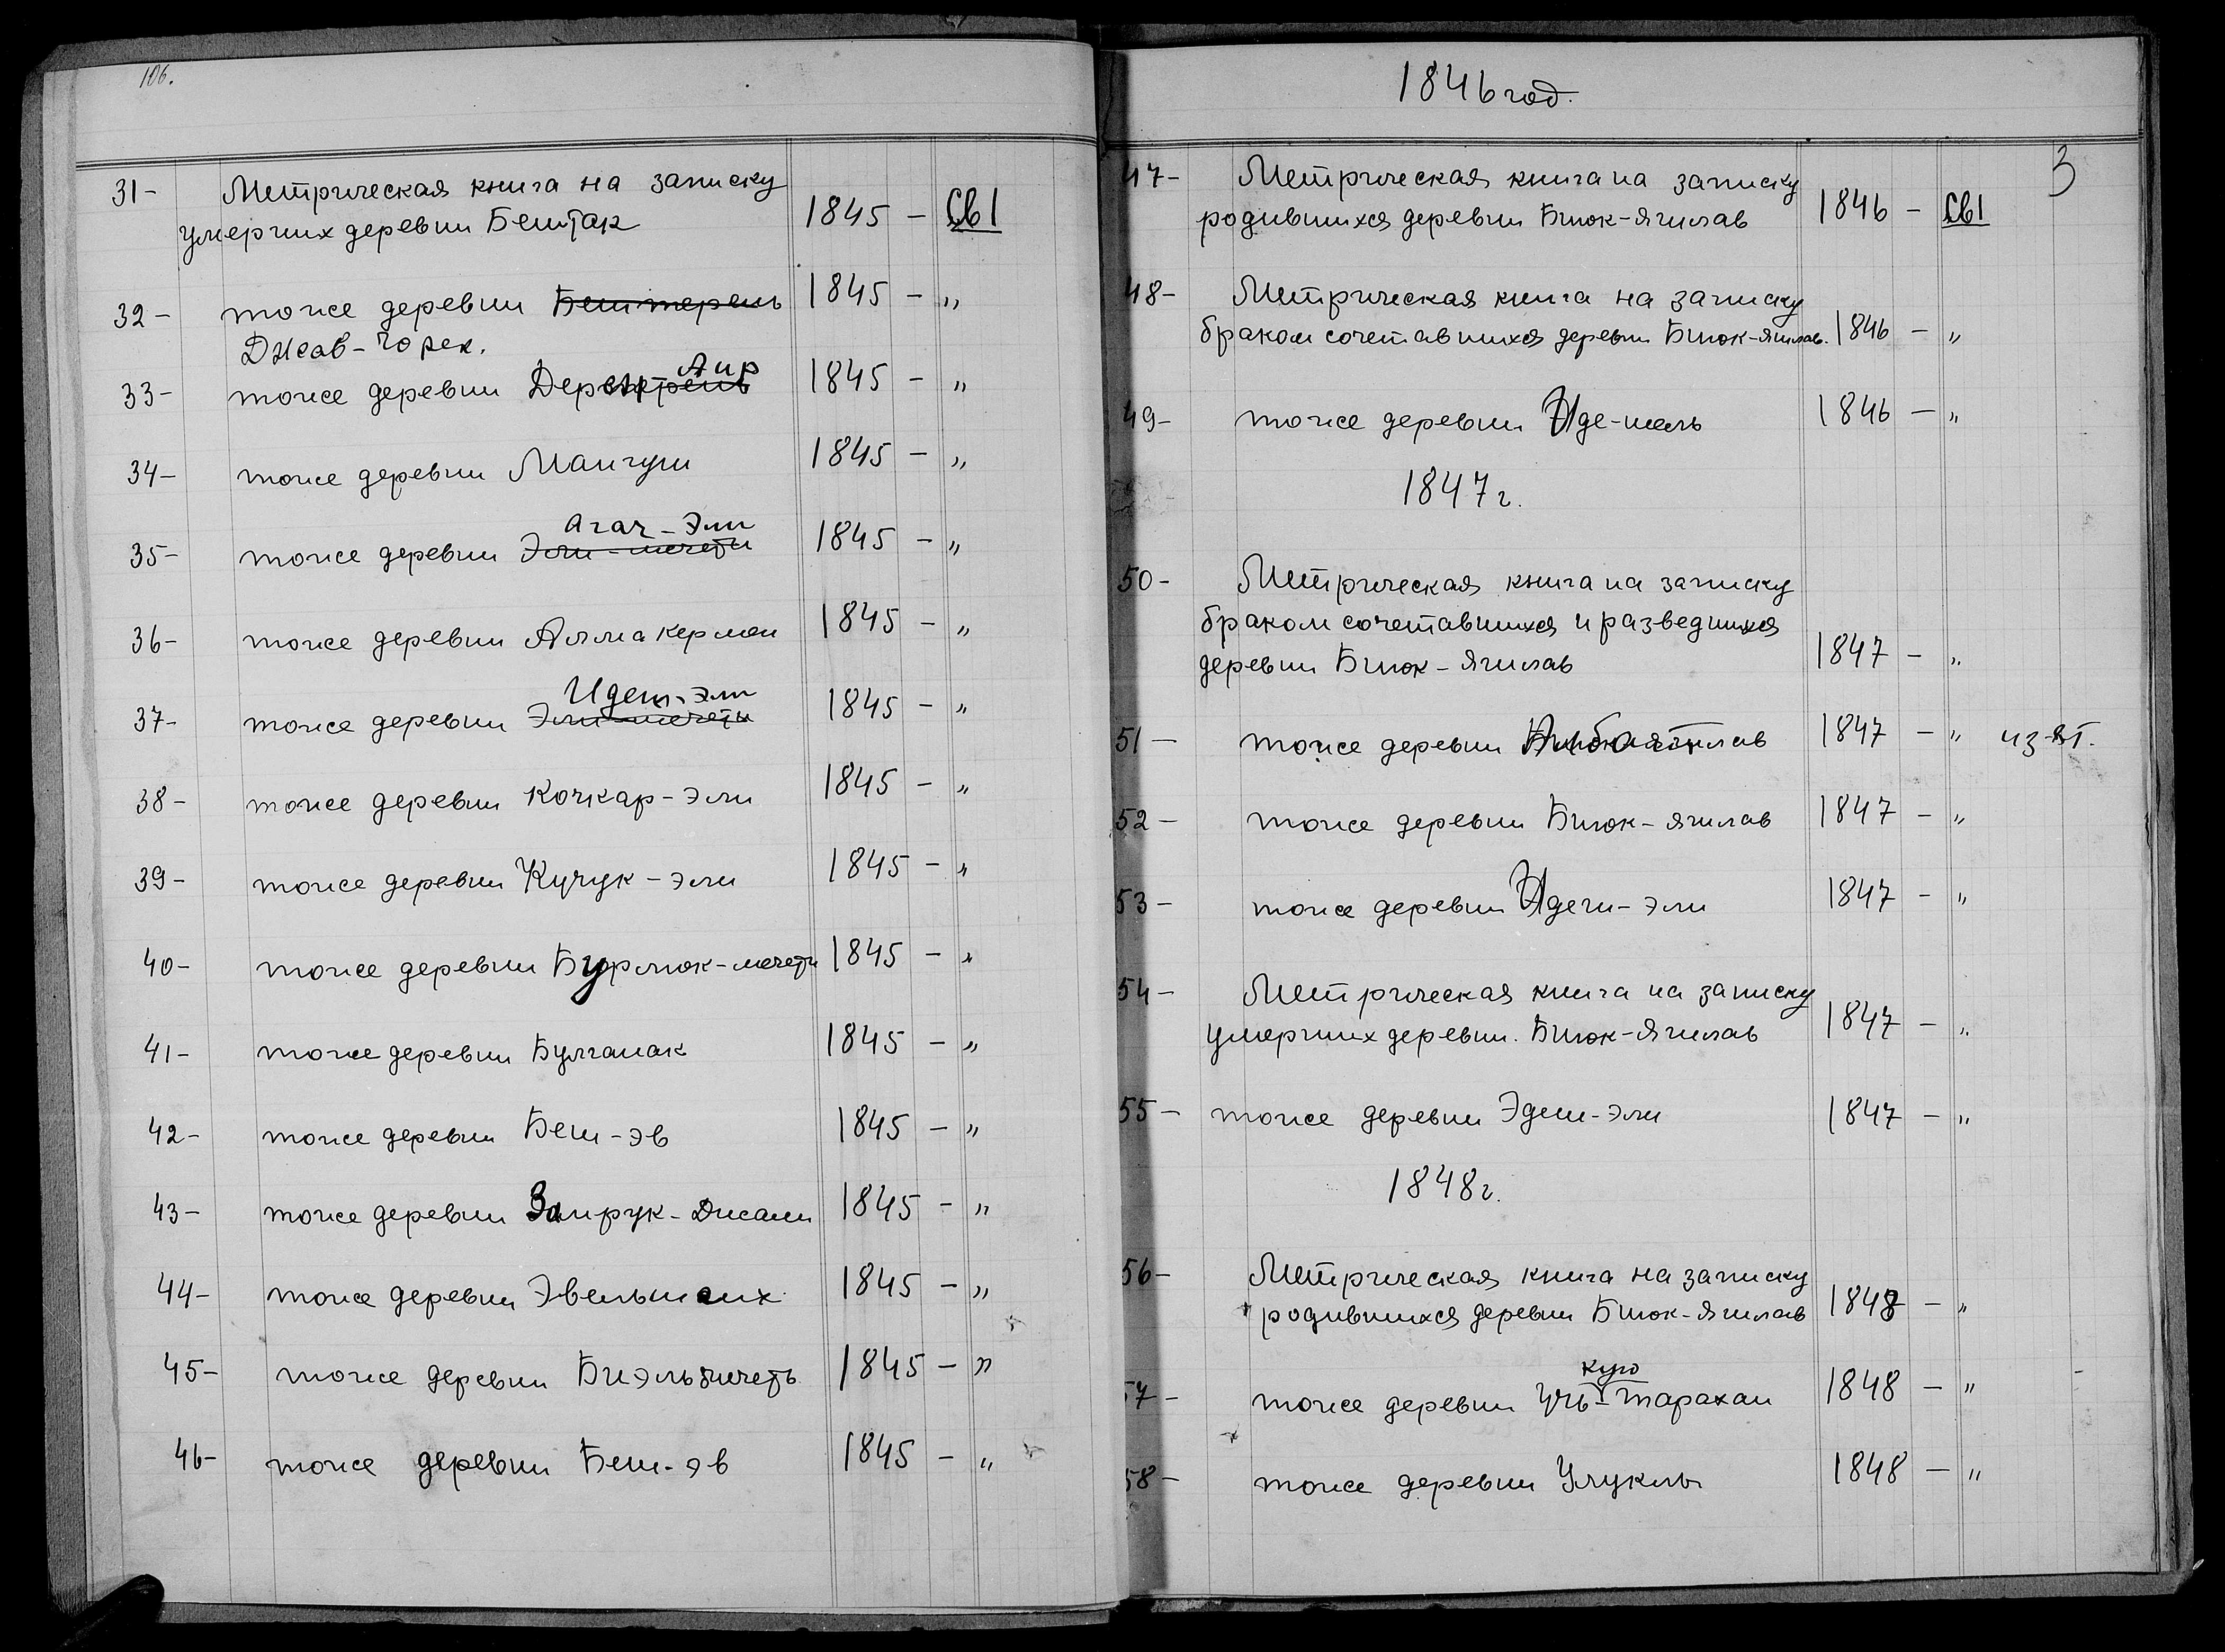 106.
31- Метрическая книга на записку
умерших деревни Бештак 1845 - Св1
32- тоже деревни Бештерек 1845 - "
Джав-Юрек.
Аир
33- тоже деревни 1845 - "
34- тоже деревни Мангуш 1845 - "
Агач-Эли
35- тоже деревни Эли-мечети 1845 - "
36- тоже деревни Алма кермен 1845 - "
Идеш-эли
37- тоже деревни Эли-мечети 1845 - "
38- тоже деревни Кочкар-эли 1845 - "
39- тоже деревни Кучук-эли 1845 - "
40- тоже деревни Бурлюк-мечети 1845 - "
41- тоже деревни Булганак 1845 - "
42- тоже деревни Беш-эв 1845 - "
43- тоже деревни 1845 - "
44- тоже деревни Эвельшеих 1845 - "
45- тоже деревни 1845 - "
46- тоже деревни Беш-эв 1845 - "
1846 год.
3
47- Метрическая книга на записку
родившихся деревни Биюк-Яшлав 1846 - Св1
48- Метрическая книга на записку
браком сочетавшихся деревни Биюк-яшлав. 1846 - "
49- тоже деревни 1846 - "
1847 г.
50- Метрическая книга на записку
браком сочетавшихся и разведшихся
деревни Биюк-Яшлав 1847 - "
51- тоже деревни 1847 - "
52- тоже деревни Биюк-яшлав 1847 - "
53- тоже деревни Идеш-эли 1847 - "
54- Метрическая книга на записку
умерших деревни. Биюк-Яшлав 1847 - "
55- тоже деревни Эдеш-эли 1847 - "
1848 г.
56- Метрическая книга на записку
родившихся деревни Биюк-Яшлав 1848 - "
кую
57- тоже деревни Учь-тарахан 1848 - "
58- тоже деревни Улуклы 1848 - "